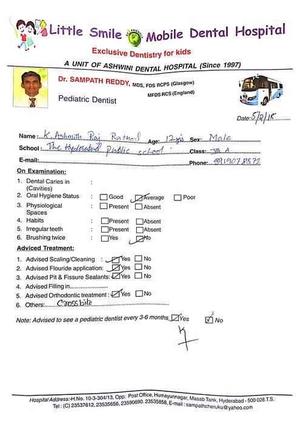 Little Smile Mobile Dental Hospital
Exclusive Dentistry for kids
A UNIT OF ASHWINI DENTAL HOSPITAL (Since 1997)
Dr. SAMPATH REDDY, MDS, FDS RCPS (Glasgow)
MFDS RCS (England)
Pediatric Dentist
Date: 5/2/18
Name: K. Ashrith Raj Age: 12 Sex: Male
School: The Hyderabad Public School Class: A
E-mail: Phone:
On Examination:
1. Dental Caries in (Cavities) :
2. Oral Hygiene Status : Good Average Poor
3. Physiological Spaces : Present Absent
4. Habits : Present Absent
5. Irregular teeth : Present Absent
6. Brushing twice : Yes No
Adviced Treatment:
1. Advised Scaling/Cleaning : Yes No
2. Advised Flouride application: Yes No
3. Advised Pit & Fissure Sealants: Yes No
4. Advised Filling in
5. Advised Orthodontic treatment : Yes No
6. Others: Crossbite
Note: Advised to see a pediatric dentist every 3-6 months. Yes No
Hospital Address: H.No. 10-3-304/13, Opp. Post Office, Humayunnagar, Masab Tank, Hyderabad - 500 028 T.S.
Tel: (C) 23537612, 23535656, 23590690, 23535858, E-mail : sampathchenuku@yahoo.com